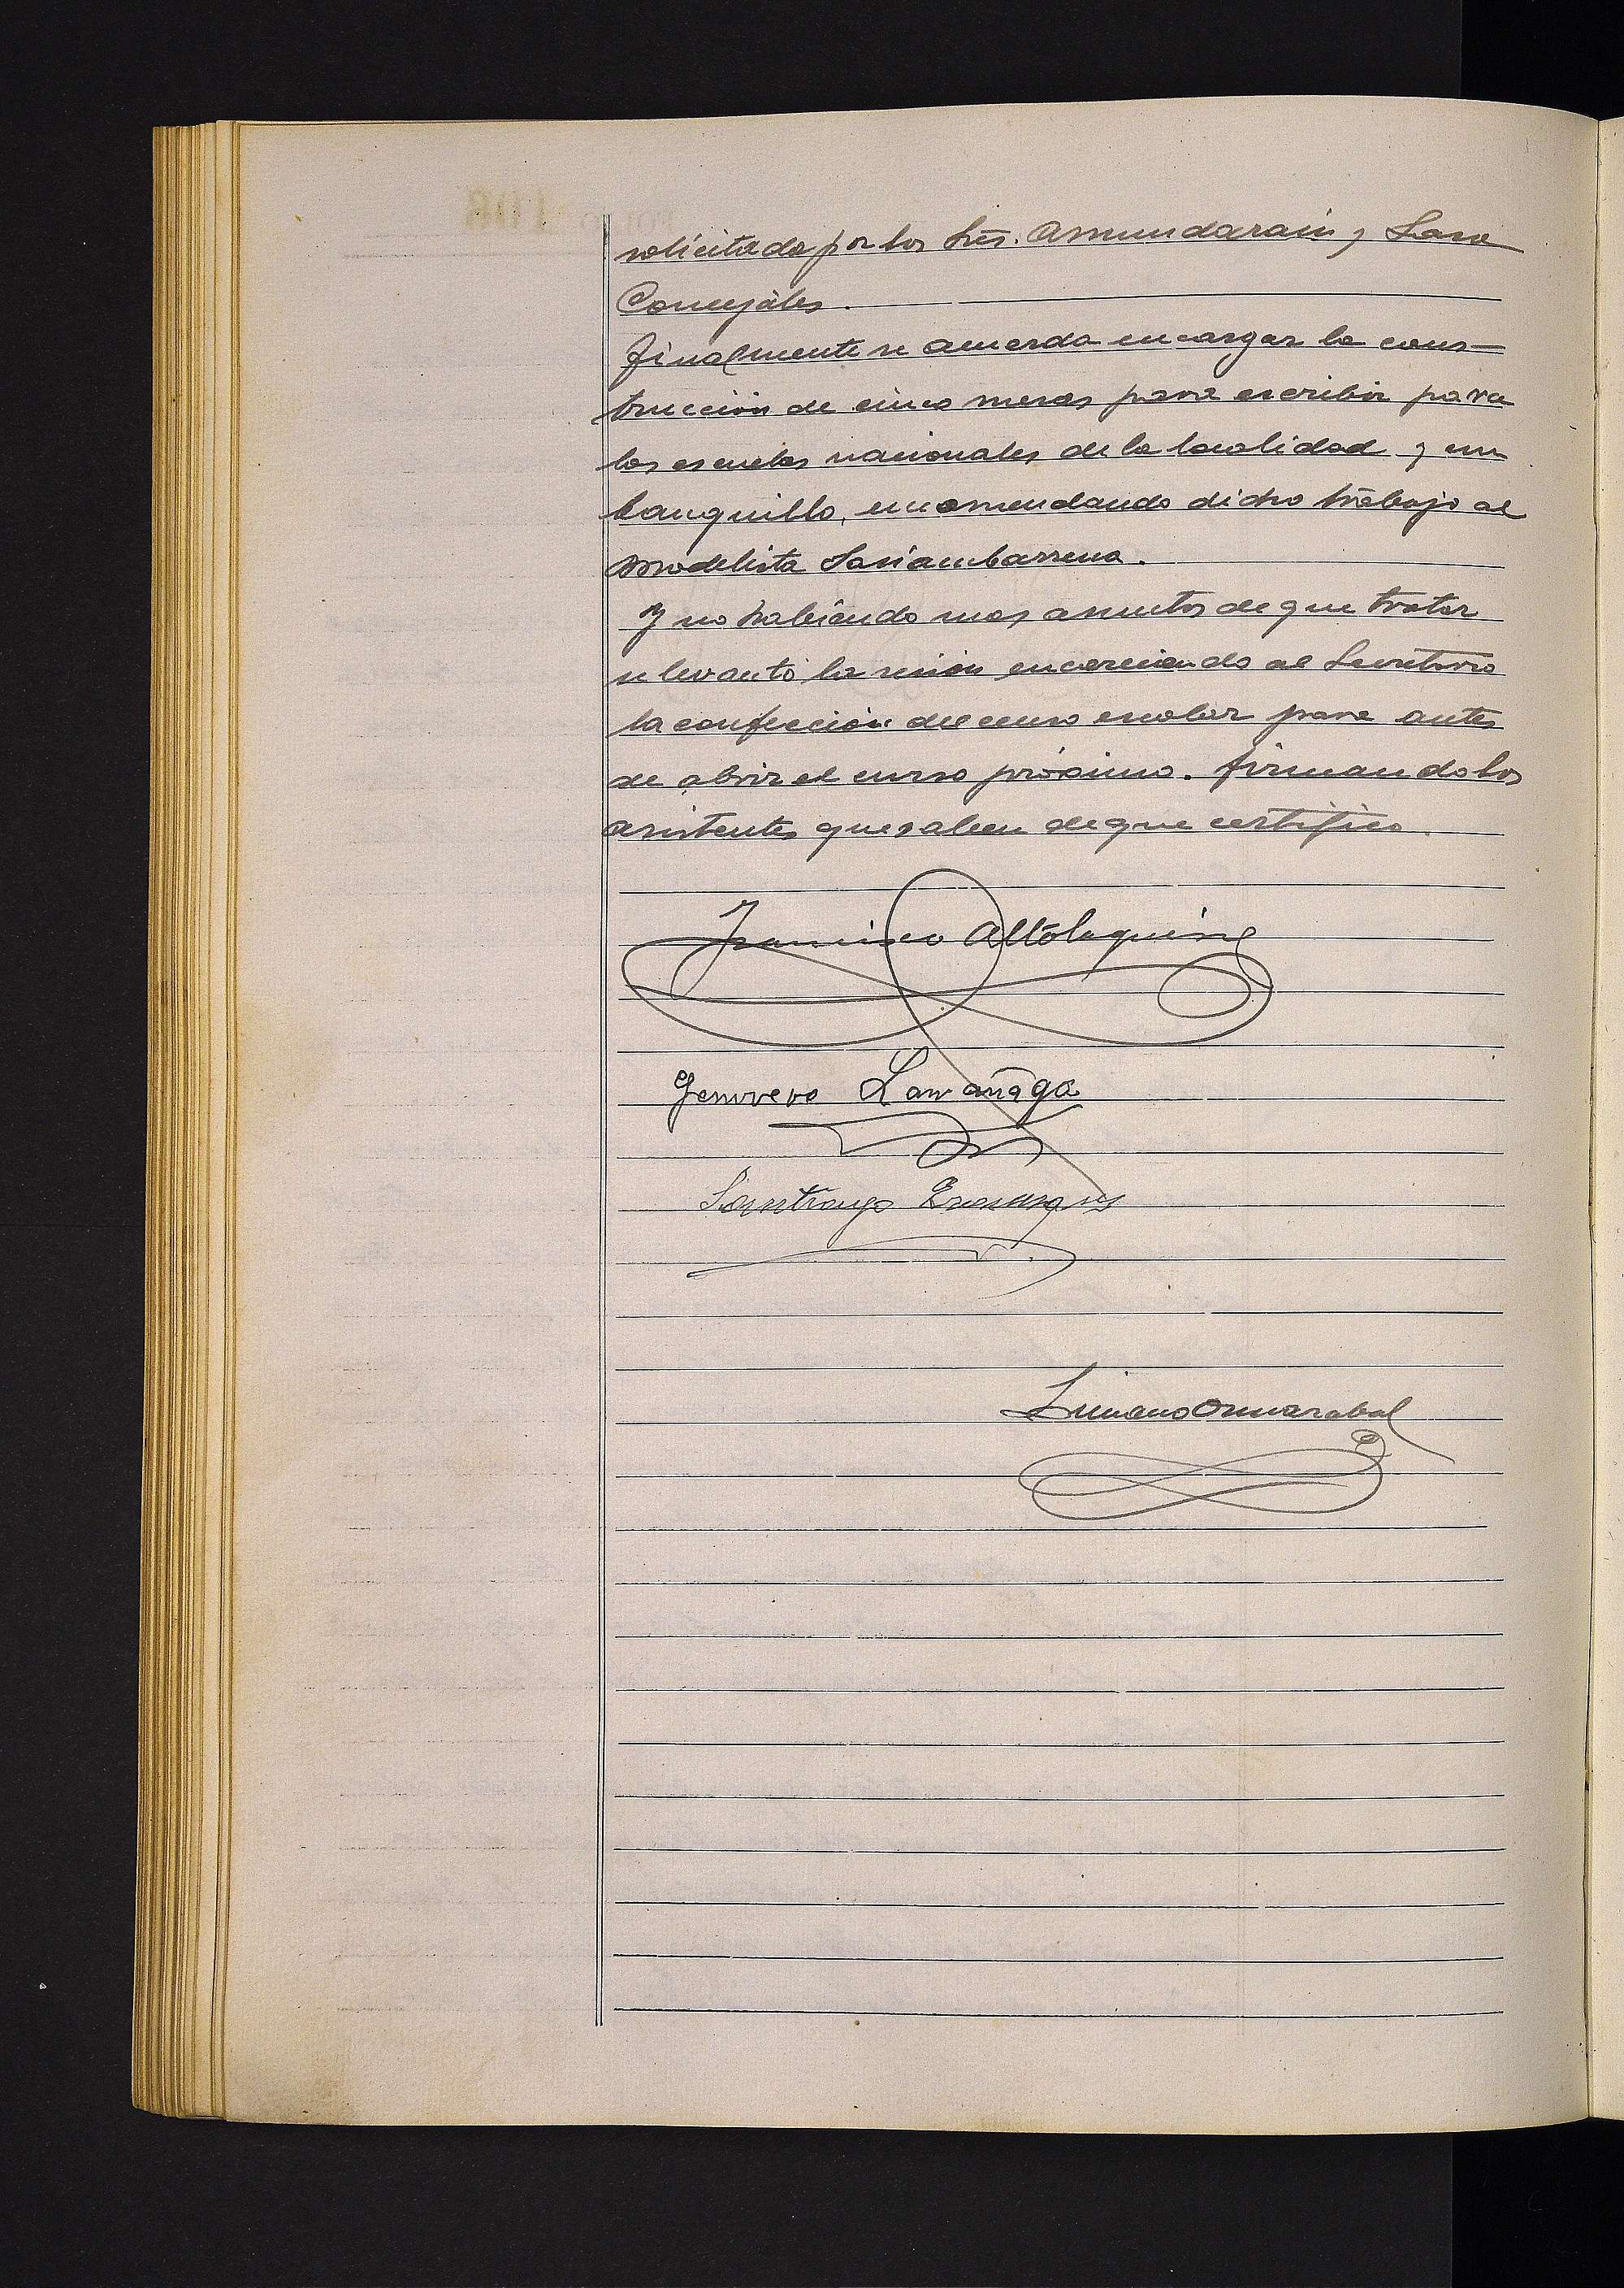 solicitado por los Sres. Amundarain y Lasa
Concejáles.
Finalmente se acuerda encargar la cons-
trucción de cinco mesas para escribir para
las escuelas nacionales de la localidad y un
banquillo, encomendando dicho trabajo al
modelista Sasiambarrena.
Y no habiendo mas asuntos de que tratar
se levantó la sesión encareciendo al Secretario
la confección del censo escolar para antes
de abrir el curso próximo. Firmando los
asistentes que saben de que certifico.
Francisco Altolaguirre
Genoveva Larrañaga
Santiago